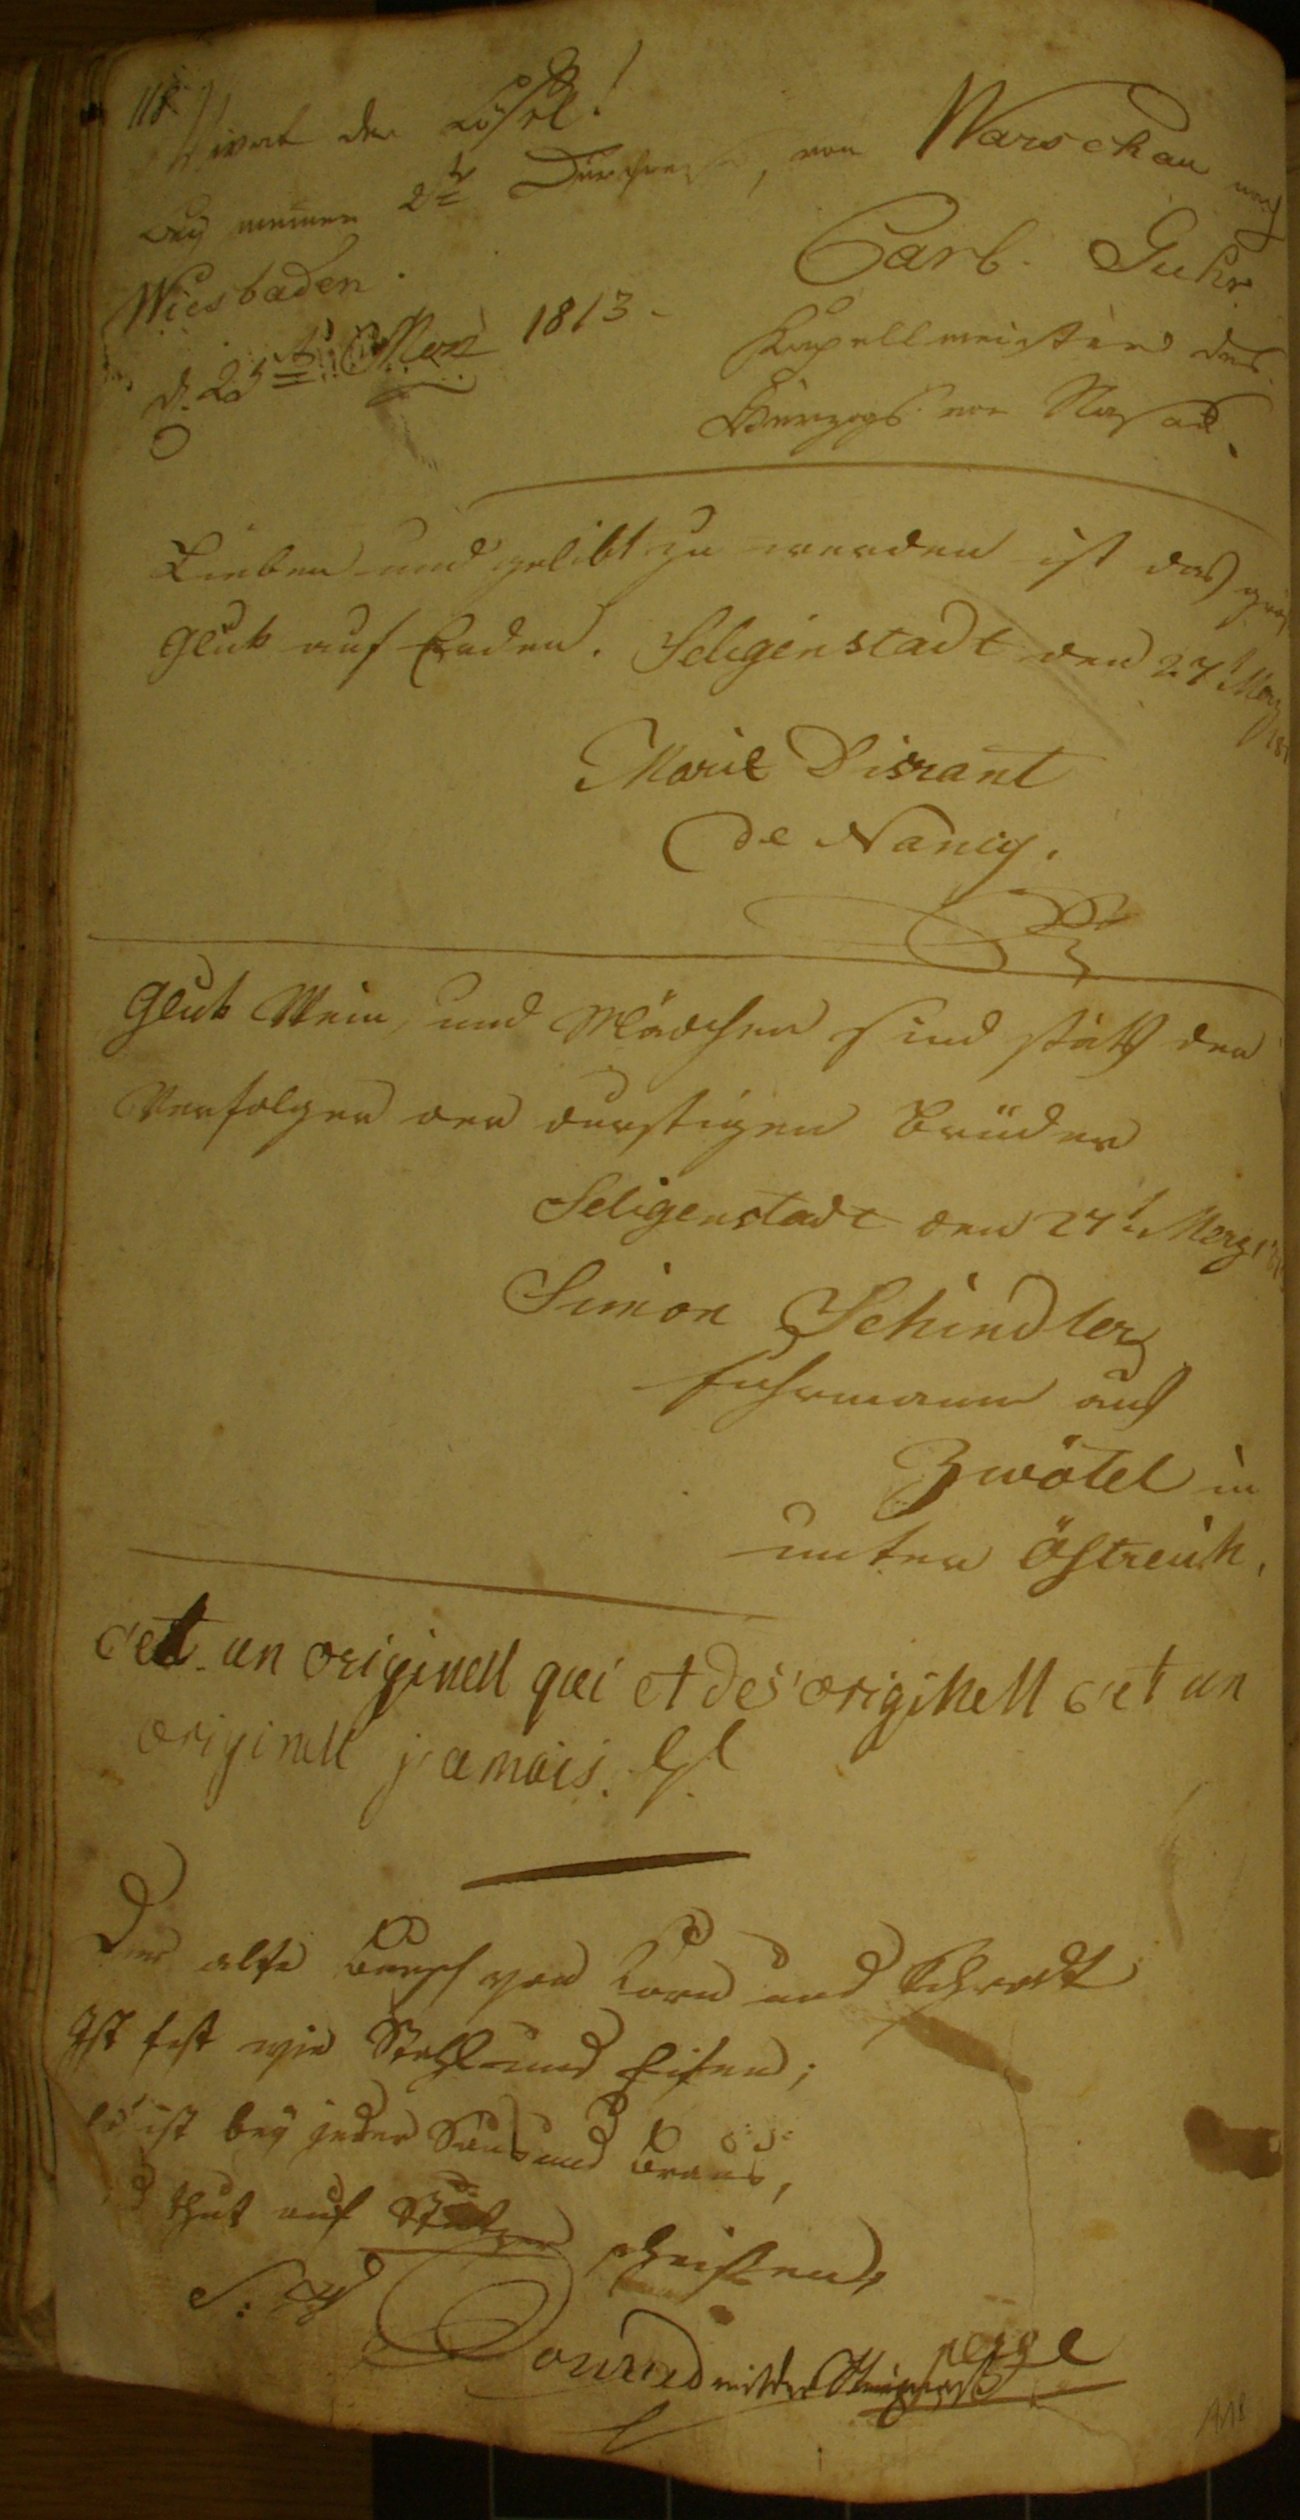 118.
Vivat der Löffel!
bey meiner 2ten Durchreise, von Warschau nach
Wiesbaden.
d. 25ten Merz 1813.
Carl Guhr.
Kapellmeister des
Herzogs von Nassau.
Lieben und gelibt zu werden ist das grös
Gluk auf Erden. Seligenstadt den 27t Merz
Marie Disrant
de Nancy.
Gluk Wein, und Mädchen sind stäts der
Verfolger der durstigen Brüder
Seligenstadt den 27t Merz
Simon Schindler
fuhrmann aus
Zwötel in
unter Östreich.
c'et un originell qui et des'originell c'et un
originell jamais.
Der alte Bursch von Korn und Schrodt
Ist fest wie Stahl und Eisen;
ist bey jeder Saus und Braus,
thut auf Stutzer scheissen,